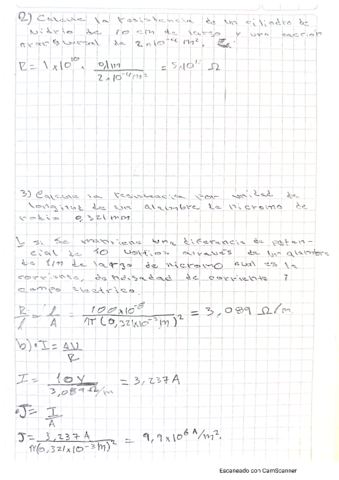 2) Calcule la resistencia de un cilindro de
vidrio de 10 cm de largo y una seccion
transversal de 2x10⁻⁴ m².
R = 1x10¹⁰ · 0,1m / 2x10⁻⁴ m² = 5x10¹² Ω
3) Calcule la resistencia por unidad de
longitud de un alambre de nicromo de
radio 0,321 mm
b si se mantiene una diferencia de poten-
cial de 10 voltios através de un alambre
de 1m de largo de nicromo cual es la
corriente, densidad de corriente y
campo electrico.
R/l = ρ/A = 100x10⁻⁸ / π(0,321x10⁻³m)² = 3,089 Ω/m
b) · I = ΔV / R
I = 10V / 3,089 Ω/m = 3,237 A
· J = I / A
J = 3,237 A / π(0,321x10⁻³m)² = 9,9x10⁶ A/m².
Escaneado con CamScanner